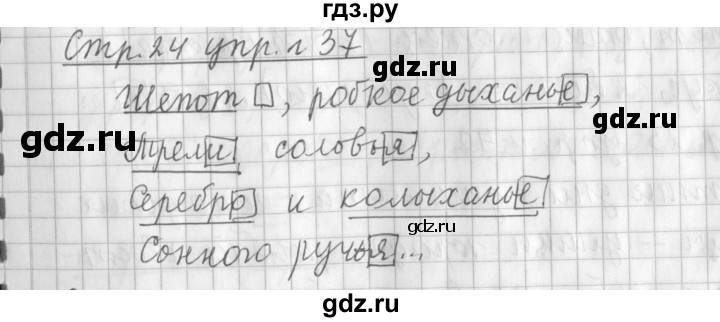 гдз.ру
Стр. 24 упр. г 37
gdz.ru
gdz.ru
Шепот , робкое дыханье,
gdz.ru
gdz.ru
Трели соловья,
Серебро и колыханье
gdz.ru
Сонного ручья...
gdz.ru
gdz.ru
gdz.ru